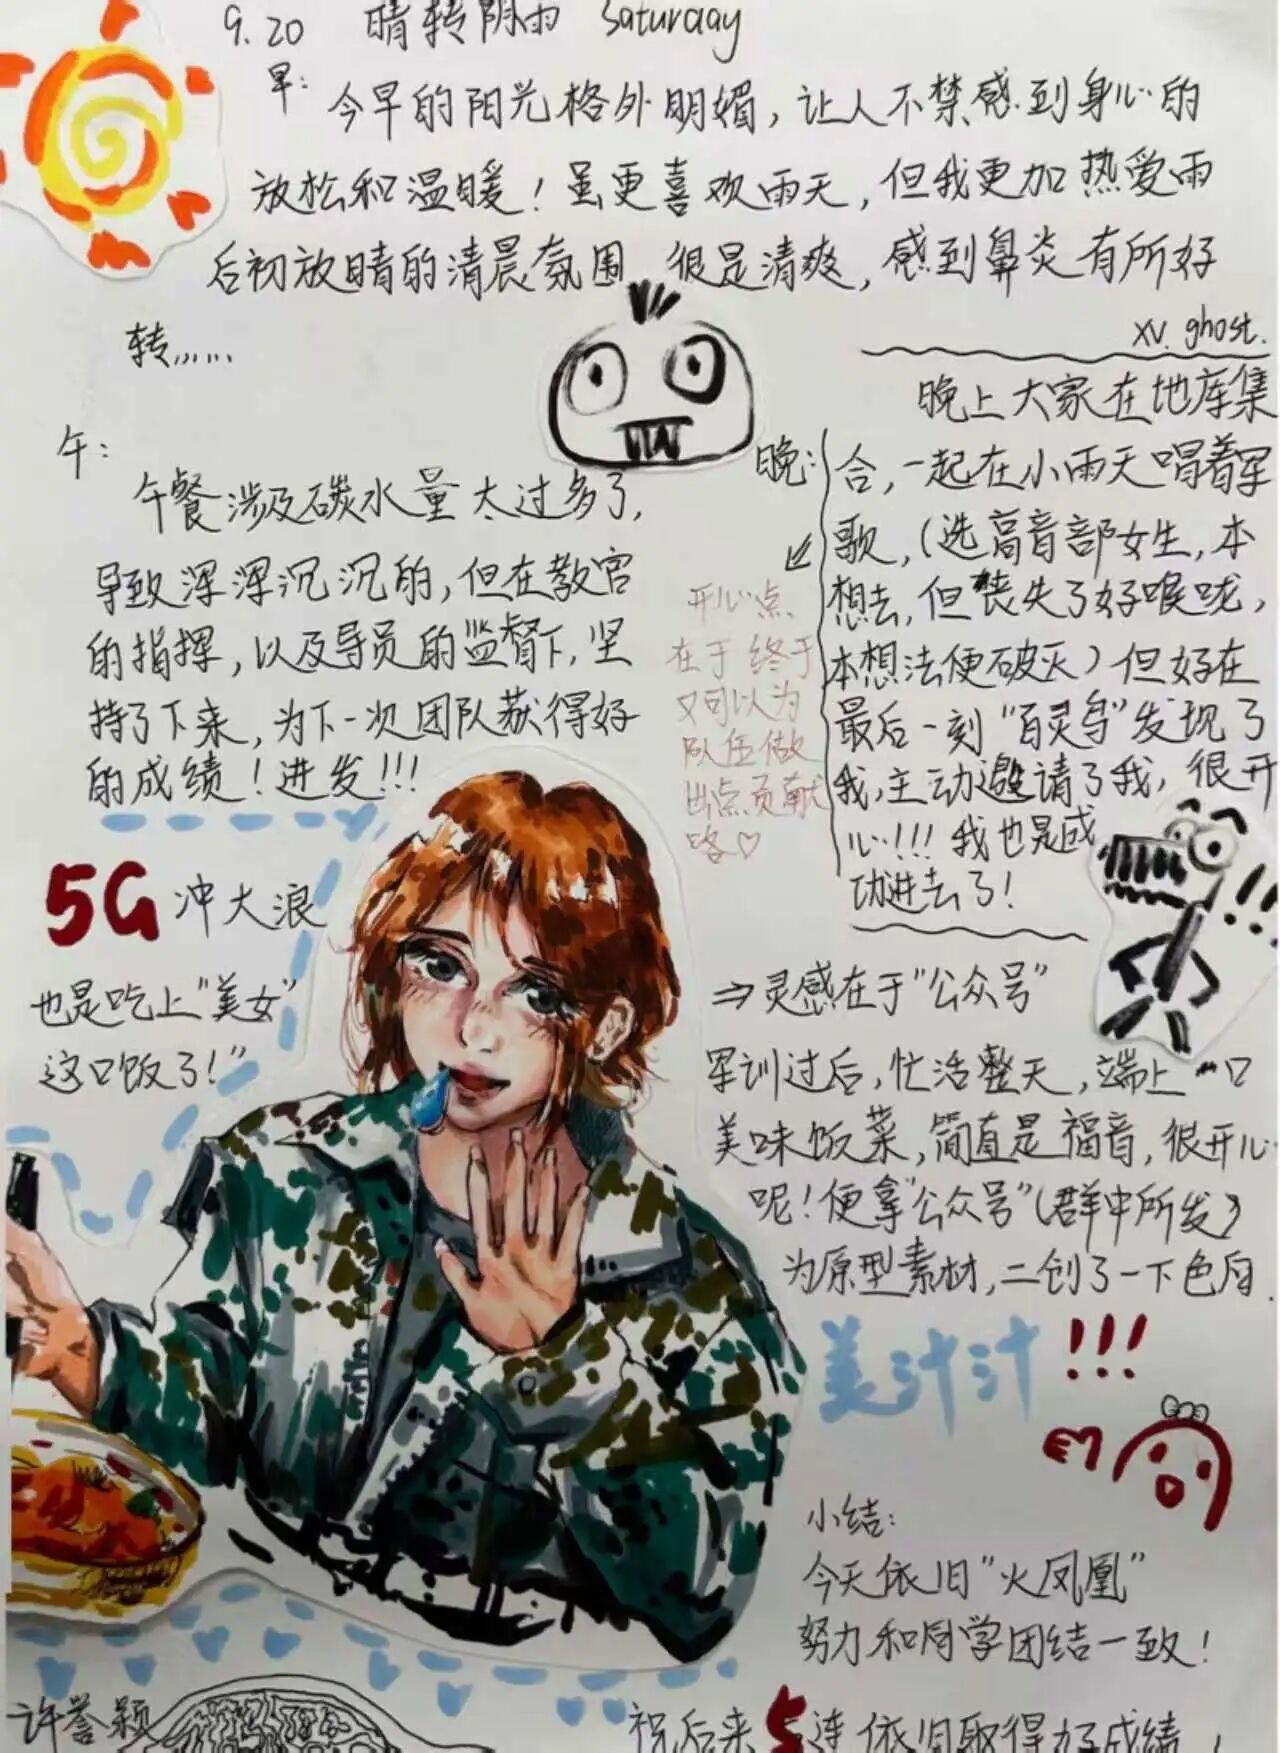 9.20 晴转阴雨 Saturday
早:
今早的阳光格外明媚,让人不禁感到身心的
放松和温暖!虽更喜欢雨天,但我更加热爱雨
后初放晴的清晨氛围 很是清爽,感到鼻炎有所好
转,,,,,,
xv. ghost.
午:
午餐涉及碳水量太过多了,
导致浑浑沉沉的,但在教官
的指挥,以及导员的监督下,坚
持了下来,为下一次团队获得好
的成绩!进发!!!
晚:
晚上大家在地库集
合,一起在小雨天唱着军
歌,(选高音部女生,本
想去,但丧失了好喉咙,
本想法便破灭)但好在
最后一刻“百灵鸟”发现了
我,主动邀请了我,很开
心!!!我也是成
功进去了!
开心点
在于终于
又可以为
队伍做
出点贡献
咯♡
5G冲大浪
也是吃上“美女”
这口饭了!”
⇒灵感在于“公众号”
军训过后,忙活整天,端上一口
美味饭菜,简直是福音,很开心
呢!便拿“公众号”(群中所发)
为原型素材,二创了一下色自.
美汁汁!!!
小结:
今天依旧“火凤凰”
努力和同学团结一致!
祝后来5连依旧取得好成绩,
许誉颖